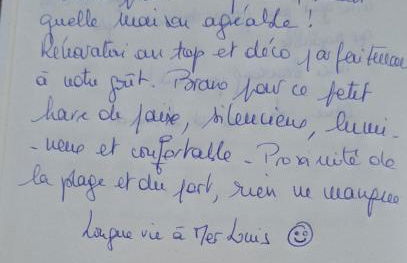 quelle maison agréable !
Rénovation au top et déco parfaitement
à notre goût. Bravo pour ce petit
havre de paix, silencieux, lumi-
-neux et confortable - Proximité de
la plage et du port, rien ne manque
Longue vie à Mer Louis ☺